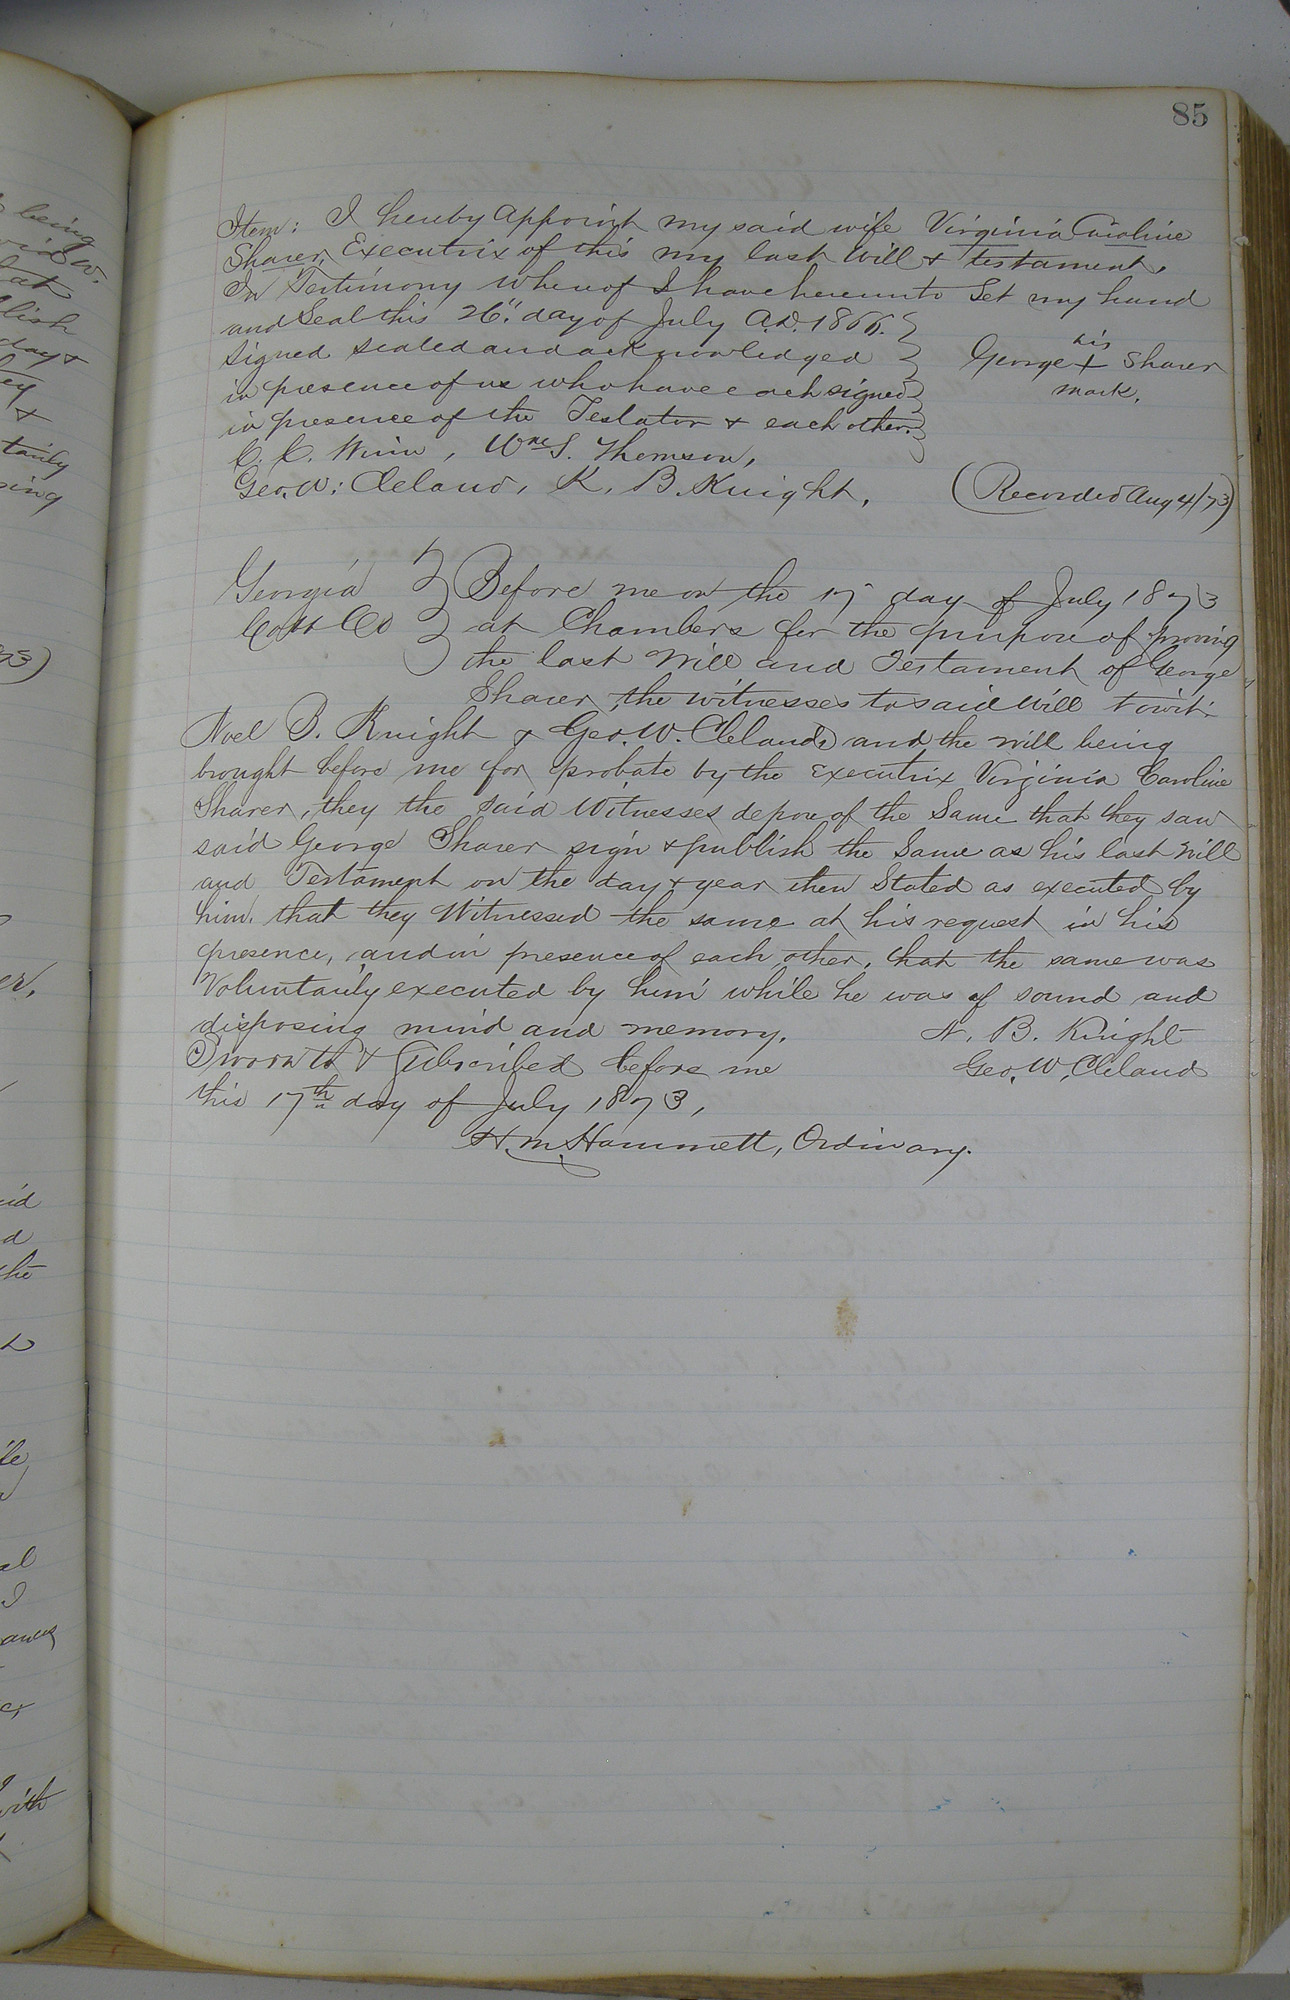 85
Item: I hereby appoint my said wife Virginia Caroline
Sharer, Executrix of this my last Will & testament.
In Testimony whereof I have hereunto Set my hand
and Seal this 26" day of July A.D. 1866.
Signed Sealed and acknowledged
in presence of us who have each signed
in presence of the Testator & each other.
his
George + Sharer
mark.
C. C. Winn, Wm S. Thomson,
Geo. W. Cleland, K. B. Knight.
(Recorded Aug 4/73)
Georgia
Cobb Co
Before me on the 17 day of July 1873
at Chambers for the purpose of proving
the last Will and Testament of George
Sharer, the witnesses to said Will towit
Noel B. Knight & Geo. W. Cleland, and the will being
brought before me for probate by the Executrix Virginia Caroline
Sharer, they the said Witnesses depose of the Same that they saw
said George Sharer sign & publish the Same as his last Will
and Testament on the day & year then Stated as executed by
him, that they Witnessed the same at his request in his
presence, and in presence of each other, that the same was
Voluntarily executed by him while he was of sound and
disposing mind and memory.
N. B. Knight
Sworn to & Subscribed before me
Geo. W. Cleland
this 17th day of July 1873,
H. M. Hammett, Ordinary.